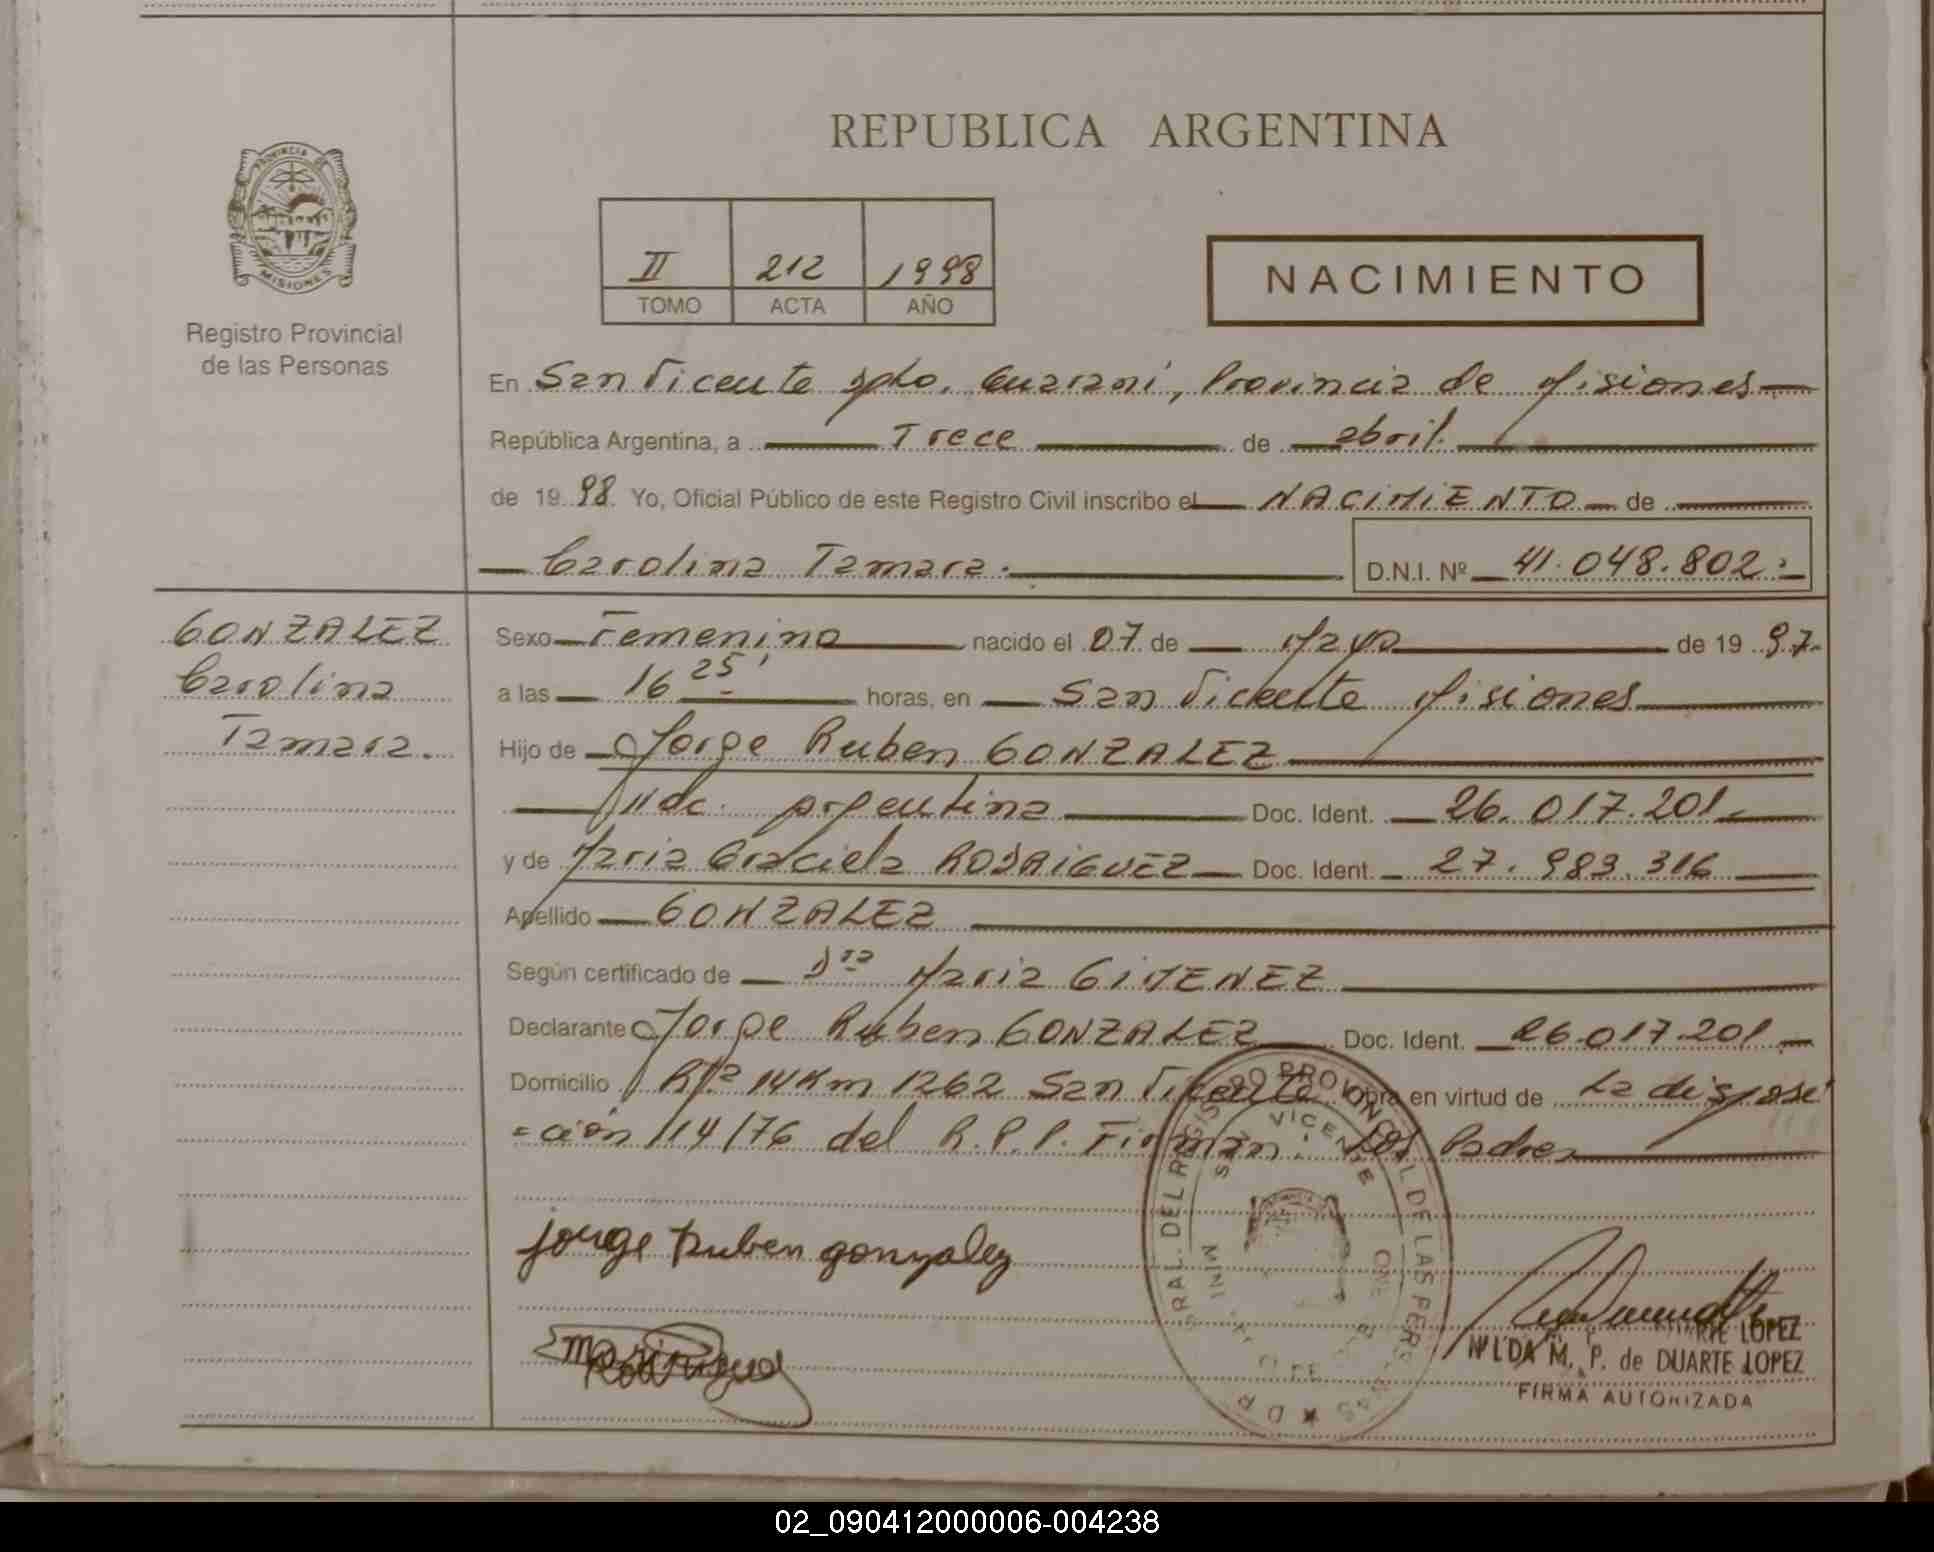 REPUBLICA ARGENTINA
PROVINCIA DE
MISIONES
Registro Provincial
de las Personas
II 212 1998
TOMO ACTA AÑO
NACIMIENTO
En San Vicente Dpto. Guaraní, Provincia de Misiones
República Argentina, a Trece de abril.
de 19 98 Yo, Oficial Público de este Registro Civil inscribo el NACIMIENTO de
Carolina Tamara. D.N.I. Nº 41.048.802.
GONZALEZ
Carolina
Tamara.
Sexo Femenino nacido el 07 de Mayo de 19 97.
a las 16 25' horas, en San Vicente Misiones
Hijo de Jorge Ruben GONZALEZ
Nac. Argentina Doc. Ident. 26.017.201
y de Maria Graciela RODRIGUEZ Doc. Ident. 27.983.316
Apellido GONZALEZ
Según certificado de Dra Maria GIMENEZ
Declarante Jorge Ruben GONZALEZ Doc. Ident. 26.017.201
Domicilio Rta 14 Km 1262 San Vicente Obra en virtud de La disposi
=ción 114/76 del R.P.P. Firman: Los Padres
jorge Ruben gonzalez
VICENTE
DEL REGISTRO PROVINCIAL DE LAS PERSONAS
M. P. de DUARTE LOPEZ
FIRMA AUTORIZADA
02_090412000006-004238